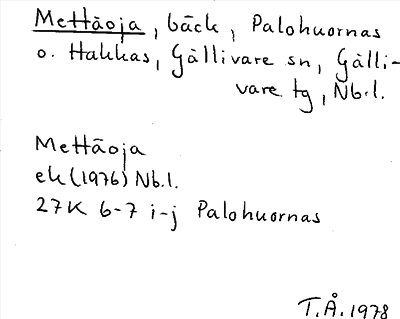 Mettäoja, bäck, Palohuornas
o. Hakkas, Gällivare sn, Gälli-
vare tg, Nb.l.
Mettäoja
ek(1976) Nb.l.
27K 6-7 i-j Palohuornas
T.Å. 1978